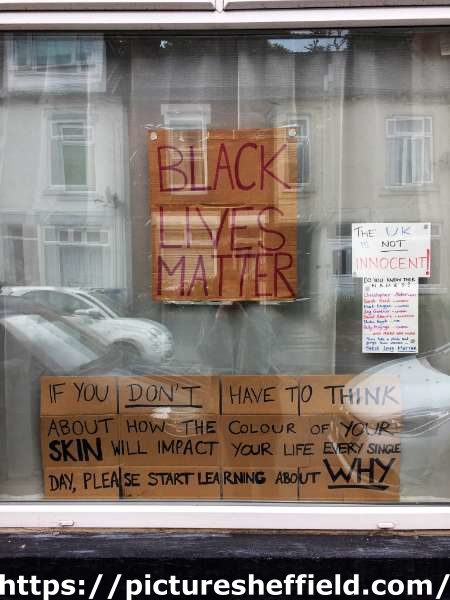 BLACK
LIVES
MATTER
THE UK
IS NOT
INNOCENT!
DO YOU KNOW THEIR
NAMES?
IF YOU DON'T HAVE TO THINK
ABOUT HOW THE COLOUR OF YOUR
SKIN WILL IMPACT YOUR LIFE EVERY SINGLE
DAY, PLEASE START LEARNING ABOUT WHY
https://picturesheffield.com/